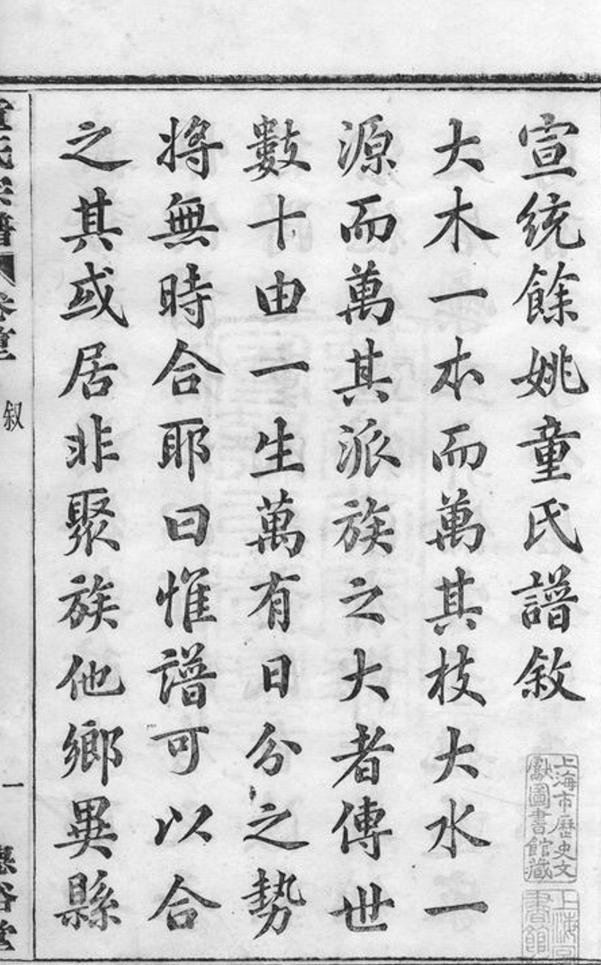 宣統餘姚童氏譜敘
大木一本而萬其枝大水一
源而萬其派族之大者傳世
數十由一生萬有日分之勢
將無時合耶曰惟譜可以合
之其或居非聚族他鄉異縣
童氏宗譜 卷首
叙
一
惠裕堂
上海市歷史文
獻圖書館藏
上海
書館